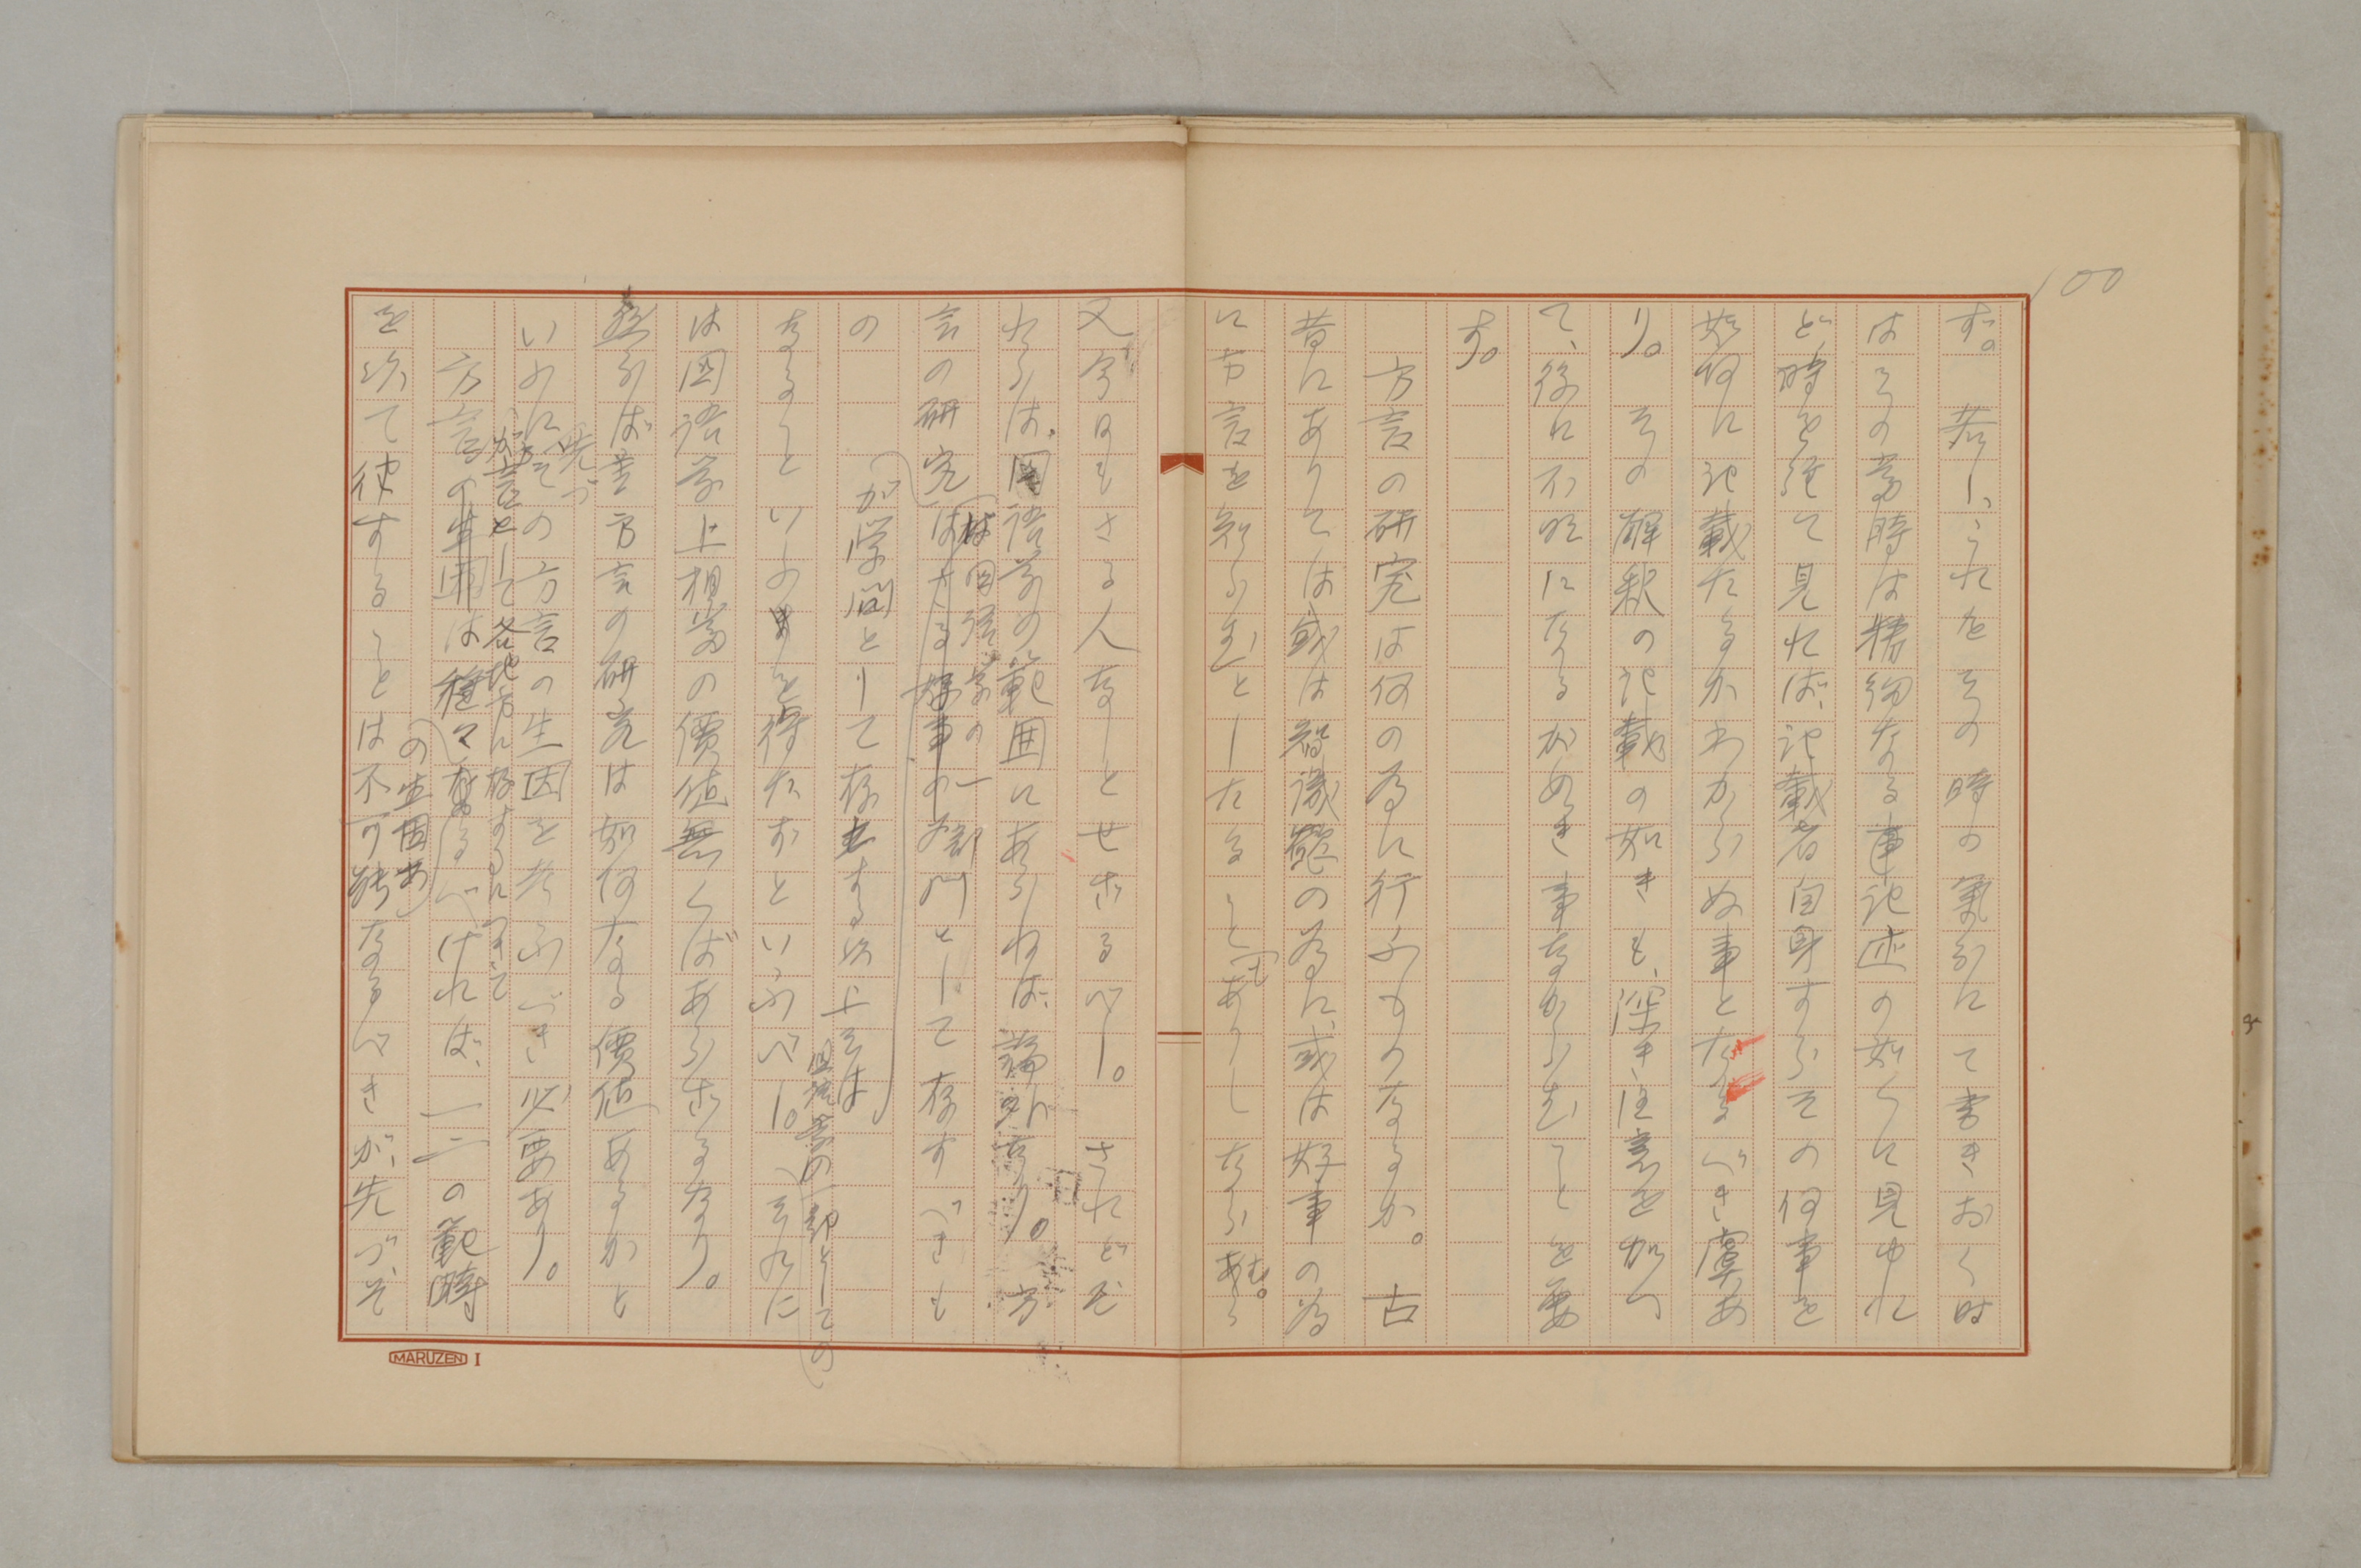 100
ず。若し、これをその時の氣分にて書きおく時
はその當時は精細なる事記述の如くに見ゆれ
ど時を經て見れば、記載者自身すらその何事を
如何に記載たるかわからぬ事となるべき虞あ
り。その解釈の記載の如きも、深き注意を加へ
て、後に不明になるがめき事なからむことを要
す。
方言の研究は何の為に行ふものなるか。古
昔にありては或は智識慾の為に、或は好事の為
に方言を知らむとしたることもありしならむ。
又今日もさる人なしとせざるべし。されどそ
れらは、国語学の範囲にあらねば、論外なり。方
言の研究はたゞ好事の為
は国語学の一部門として存すべきも
の
が学問として存在する以上そは
国語学の一部としての
なることいふ事を得たずといふべし。それに
は国語学上相當の價値無くばあらざるなり。
然らば、方言の研究は如何なる價値あるかと
いふに、先づその方言の生因を考ふべき必要あり。
方言として各地方に存するにつきて
方言の生因は種々なるべければ、一二の範疇
の生因あ
を以て律することは不可能なるべきが、先づ、そ
MARUZEN I